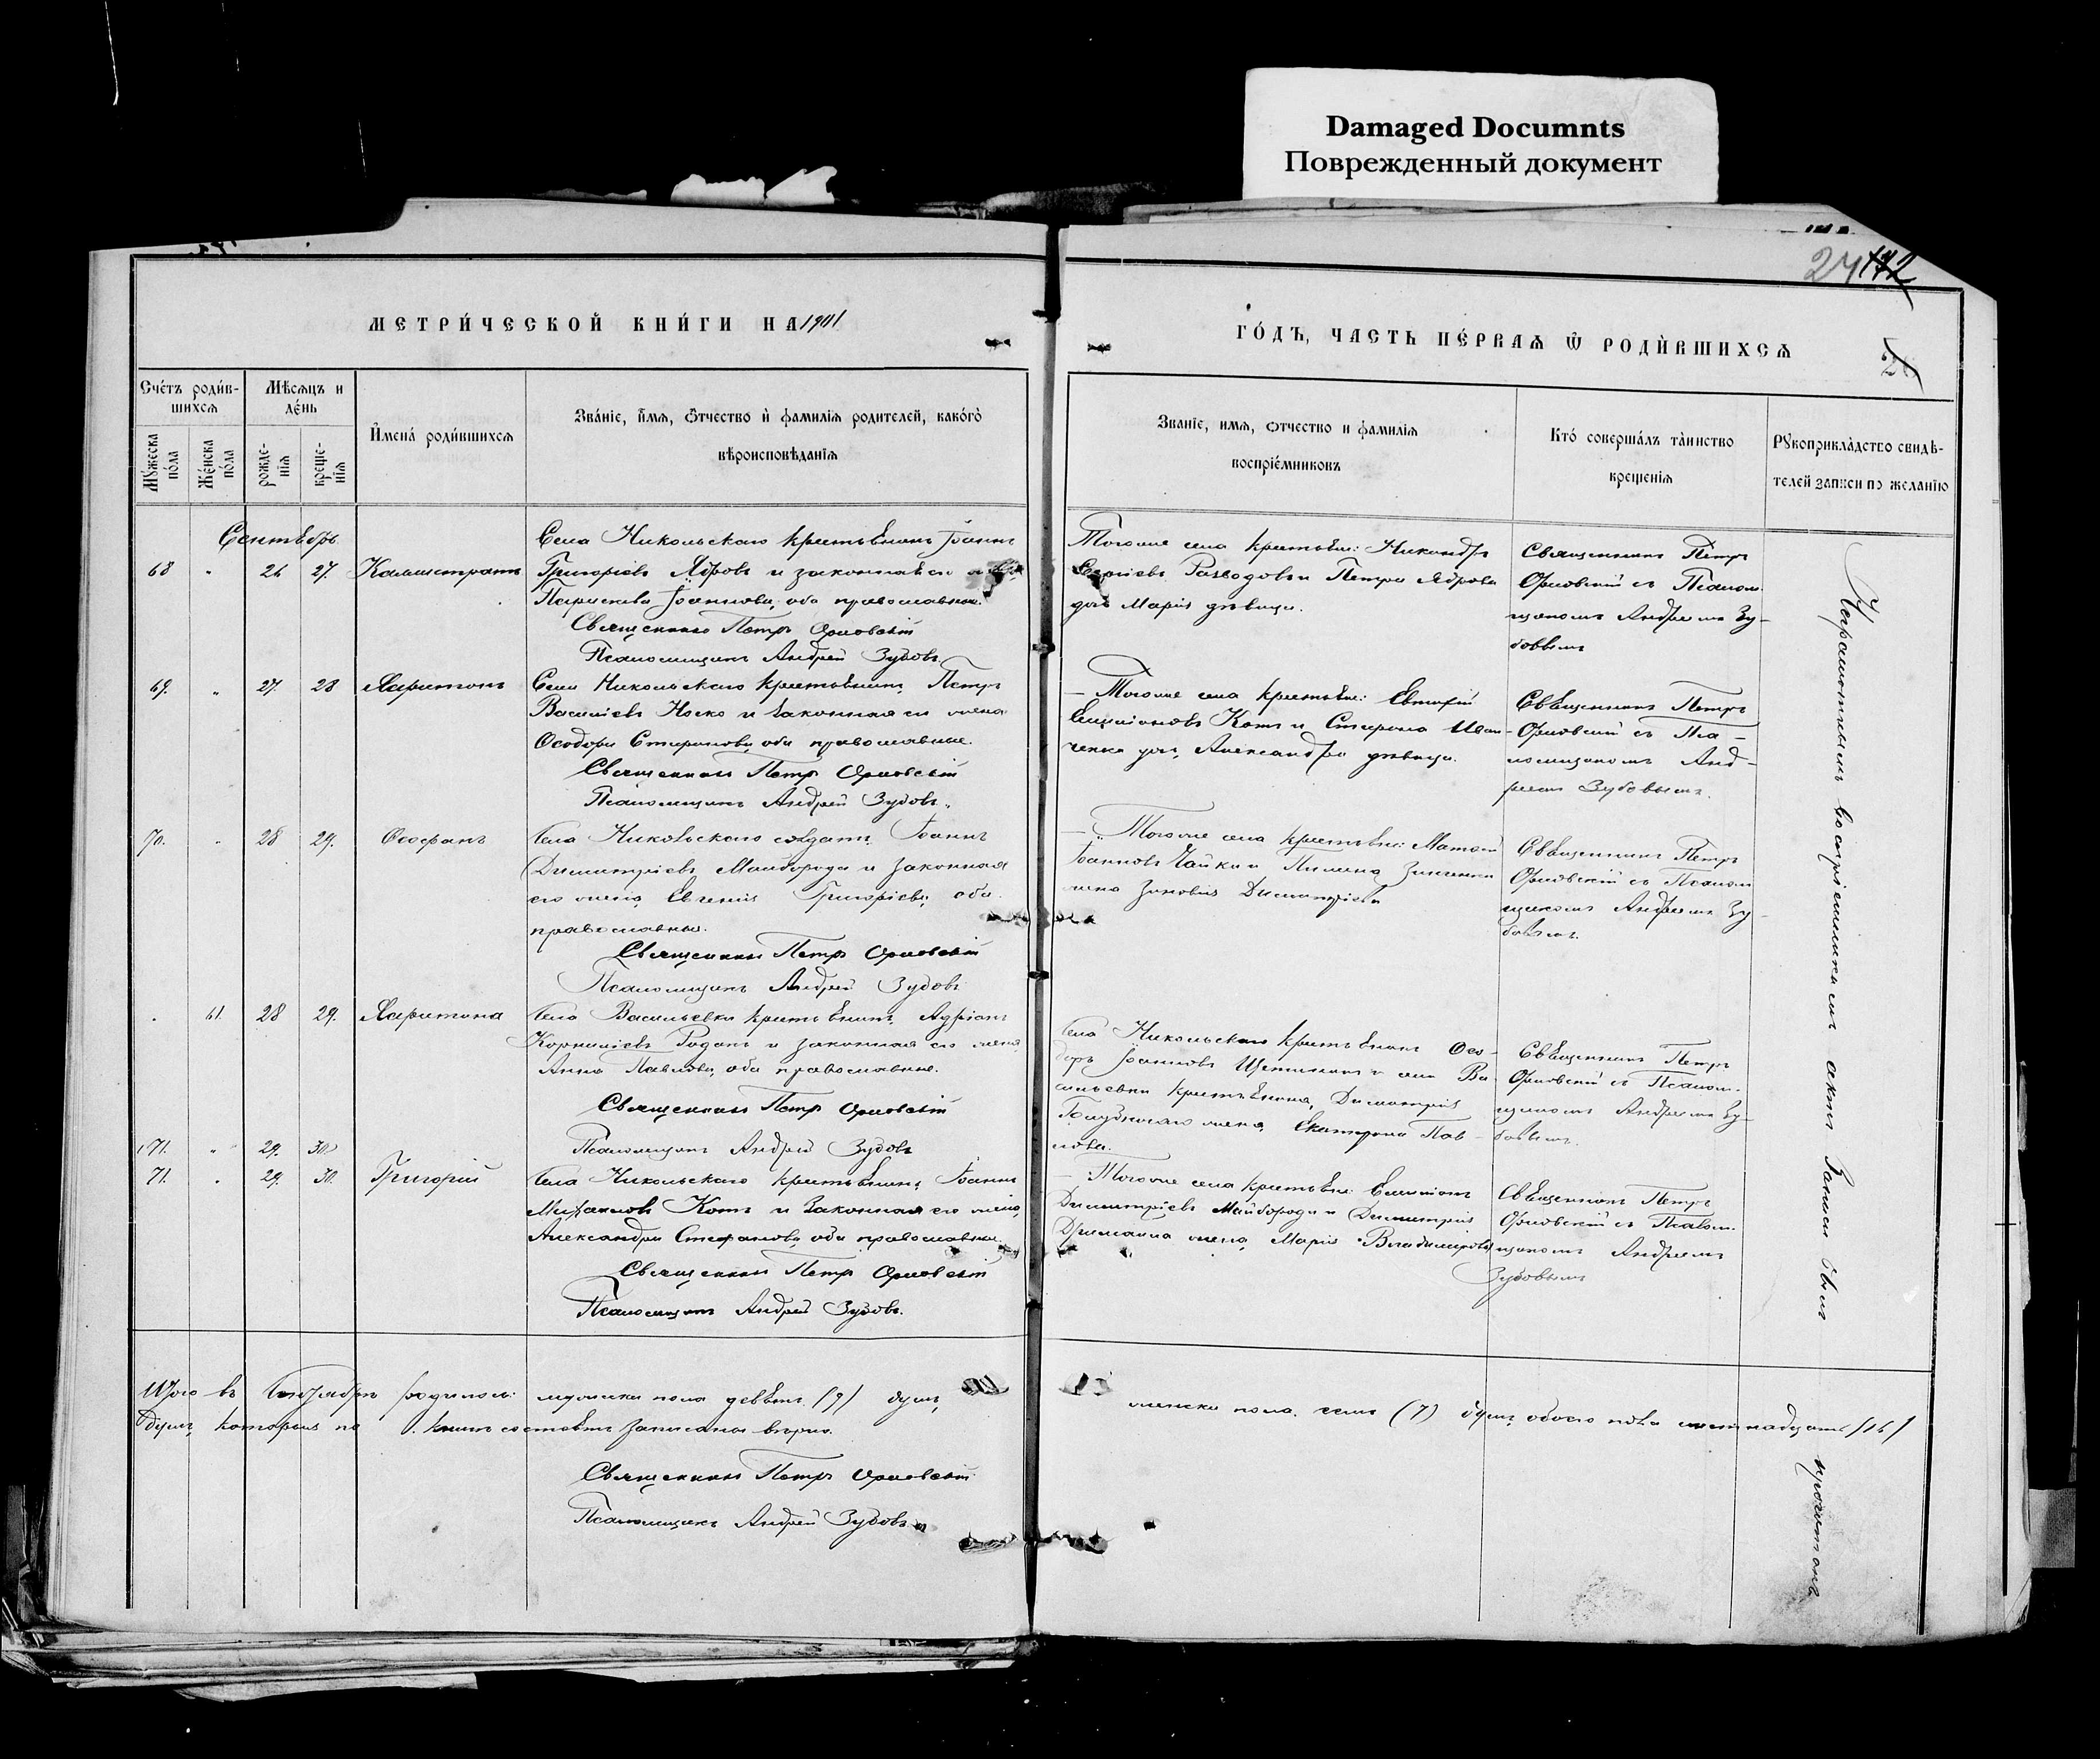 Damaged Documnts
Поврежденный документ
24 142
МЕТРИ́ЧЕСКОЙ КНИ́ГИ НА 1901
ГО́ДЪ, ЧАСТЬ ПЕ́РВАѦ Ѿ РОДИ́ВШИХСѦ
Сче́тъ роди́в-
шихсѧ
Мѣсѧцъ и
де́нь
И҆мена́ роди́вшихсѧ
Зва́нїе, и҆́мѧ, ѻ҆́тчество и҆ фамилїѧ родителей, како́гѡ
вѣроисповѣданїѧ
Мꙋ́жеска
по́ла
Же́нска
по́ла
рожде-
нїѧ
креще-
нїѧ
Званїе, имѧ, ѻтчество и фамилїѧ
воспрїе́мниковъ
Кто́ соверша́лъ та́инство
крещенїѧ
Рꙋкоприкла́дство свидѣ-
телей записи по желанїю
Сентябрь
Села Никольскаго крестьянинъ Іоаннъ
68 " 26 27. Каллистратъ Григоріевъ Ядровъ и законная его жена
Параскева Іоаннова, оба православные.
Священникъ Петръ Орловскій
Псаломщикъ Андрей Зубовъ.
Тогоже села крестьяне: Никандръ
Сергіевъ Разводовъ и Петра Ядрова
дочь Марія дѣвица.
Священникъ Петръ
Орловскій съ Псалом-
щикомъ Андреемъ Зу-
бовымъ
69. " 27. 28 Харитонъ Села Никольскаго крестьянинъ Петръ
Василіевъ Носко и законная его жена
Ѳеодора Стефанова, оба православные.
Священникъ Петръ Орловскій
Псаломщикъ Андрей Зубовъ.
Тогоже села крестьяне: Евтихій
Симеоновъ Котъ и Стефана Иван-
ченка дочь, Александра дѣвица.
Священникъ Петръ
Орловскій съ Пса-
ломщикомъ Анд-
реемъ Зубовымъ.
70. " 28 29. Ѳеофанъ Села Никольскаго солдатъ, Іоаннъ
Димитріевъ Майборода и законная
его жена, Евгенія Григоріева, оба
православные.
Священникъ Петръ Орловскій
Псаломщикъ Андрей Зубовъ
Тогоже села крестьяне: Матѳей
Іоанновъ Чайка и Пимена Зинченка
жена Зиновія Димитріева
Священникъ Петръ
Орловскій съ Псалом
щикомъ Андреемъ Зу-
бовымъ.
" 61. 28 29. Харитина Села Васильевки крестьянинъ, Адріанъ
Корниліевъ Роданъ и законная его жена,
Анна Павлова, оба православные.
Священникъ Петръ Орловскій
Псаломщикъ Андрей Зубовъ
Села Никольскаго крестьянинъ Ѳео-
доръ Іоанновъ Щетининъ и села Ва-
сильевки крестьянина, Димитрія
жена, Екатерина Пав-
лова.
Священникъ Петръ
Орловскій съ Псалом-
щикомъ Андреемъ Зу-
бовымъ.
171. " 29. 30.
71. " 29. 30. Григорій Села Никольскаго крестьянинъ, Іоаннъ
Михаиловъ Котъ и законная его жена,
Александра Стефанова, оба православные.
Священникъ Петръ Орловскій
Псаломщикъ Андрей Зубовъ.
Тогоже села крестьяне: Симеонъ
Димитріевъ Майборода и Димитрія
жена, Марія Владимірова
Священникъ Петръ
Орловскій съ Псалом-
щикомъ Андреемъ
Зубовымъ
Неграмотнымъ воспріемникамъ актъ записи былъ
прочитанъ
Итого въ Сентябрѣ родилось: мужеска пола девять /9/ душъ, женска пола семь (7) душъ, обоего пола шестнадцать /16/
душъ, которыя по записаны вѣрно.
Священникъ Петръ Орловскій
Псаломщикъ Андрей Зубовъ